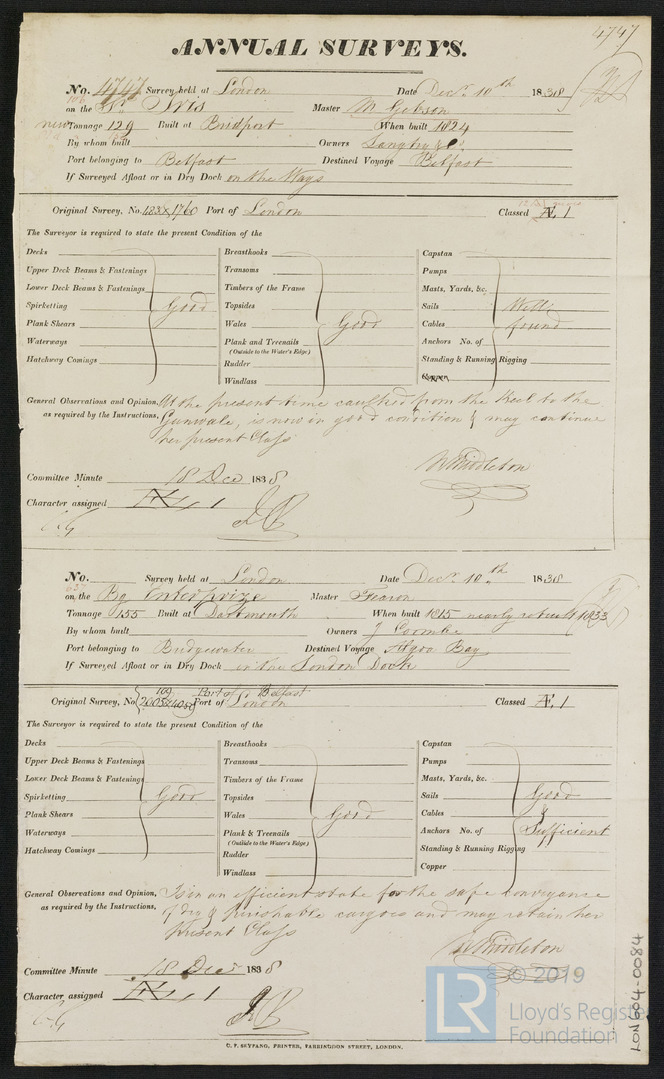 4747
ANNUAL SURVEYS.
No. 4747 Survey held at London Date Decr. 10th 1838
on the Iris Master M Gibson
Tonnage 129 Built at Bridport When built 1824
By whom built Owners Langtry & Co.
Port belonging to Belfast Destined Voyage Belfast
If Surveyed Afloat or in Dry Dock on the Ways
Original Survey, No. 1760 Port of London Classed Æ 1
The Surveyor is required to state the present Condition of the
Decks Breasthooks Capstan
Upper Deck Beams & Fastenings Transoms Pumps
Lower Deck Beams & Fastenings Timbers of the Frame Masts, Yards, &c.
Spirketting Good Topsides Sails Well
Plank Shears Wales Good Cables found
Waterways Plank and Treenails Anchors No. of
(Outside to the Water's Edge)
Hatchway Comings Rudder Standing & Running Rigging
Windlass Copper
General Observations and Opinion, At the present time caulked from the Keel to the
as required by the Instructions, Gunwale, is now in good condition & may continue
her present Class
W Middleton
Committee Minute 18 Dec 1838
Character assigned Æ 1
No. Survey held at London Date Decr. 10th 1838
on the Bg Enterprize Master Fearon
Tonnage 155 Built at Dartmouth When built 1815 nearly rebuilt 1833
By whom built Owners J Coombe
Port belonging to Bridgewater Destined Voyage Algoa Bay
If Surveyed Afloat or in Dry Dock in the London Dock
109 Port of Belfast
Original Survey, No. Port of London Classed Æ 1
The Surveyor is required to state the present Condition of the
Decks Breasthooks Capstan
Upper Deck Beams & Fastenings Transoms Pumps
Lower Deck Beams & Fastenings Timbers of the Frame Masts, Yards, &c.
Spirketting Good Topsides Sails Good
Plank Shears Wales Good Cables &
Waterways Plank & Treenails Anchors No. of Sufficient
(Outside to the Water's Edge)
Hatchway Comings Rudder Standing & Running Rigging
Windlass Copper
General Observations and Opinion, Is in an efficient state for the safe conveyance
as required by the Instructions, of dry & perishable cargoes and may retain her
present Class
W Middleton
Committee Minute 18 Decr 1838
Character assigned Æ 1
C. F. SEYFANG, PRINTER, FARRINGDON STREET, LONDON.
LON604-0084
LR
© 2019
Lloyd's Register
Foundation